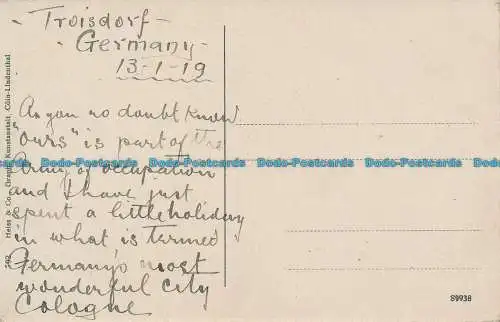 - Troisdorf -
- Germany -
13-1-19
As you no doubt know
"ours" is part of the
Army of occupation
and I have just
spent a little holiday
in what is termed
Germany's most
wonderful city
Cologne
592 Heiss & Co., Graph. Kunstanstalt, Cöln-Lindenthal
Dodo-Postcards Dodo-Postcards Dodo-Postcards Dodo-Postcards Dodo-Postcards
S9938